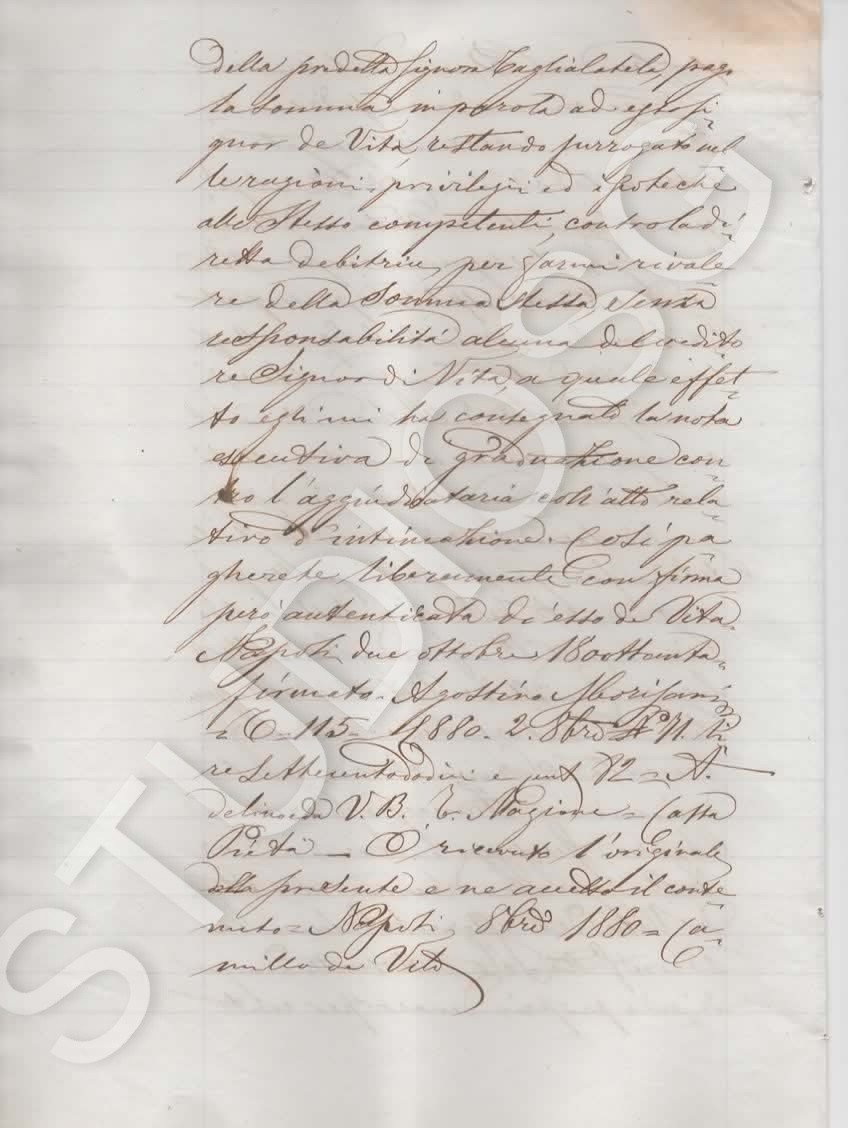 della predetta Signora Taglialatela, pago
la somma in parola ad esso Si=
gnor de Vita, restando surrogato nel
le ragioni, privilegi ed ipoteche
allo Stesso competenti, contro la di=
retta debitrice, per farmi rivale
re della Somma stessa, senza
responsabilità alcuna del credito
re Signor di Vita, a quale effet=
to egli mi ha consegnato la nota
esecutiva di graduazione con
tro l'aggiudicataria coll'atto rela=
tivo d'intimazione. Così pa
gherete liberamente con firma
però autenticata di esso de Vita.
Napoli due ottobre 1800ttanta=
firmato= Agostino Morisani
= 115 1880. 2. 8bre li
re Settecentododici e 82 = A.
V. B. = Cassa
Pietà — O' ricevuto l'originale
della presente e ne accetto il conte
nuto= Napoli 8bre 1880= Ca=
millo de Vita
STUDIOSG